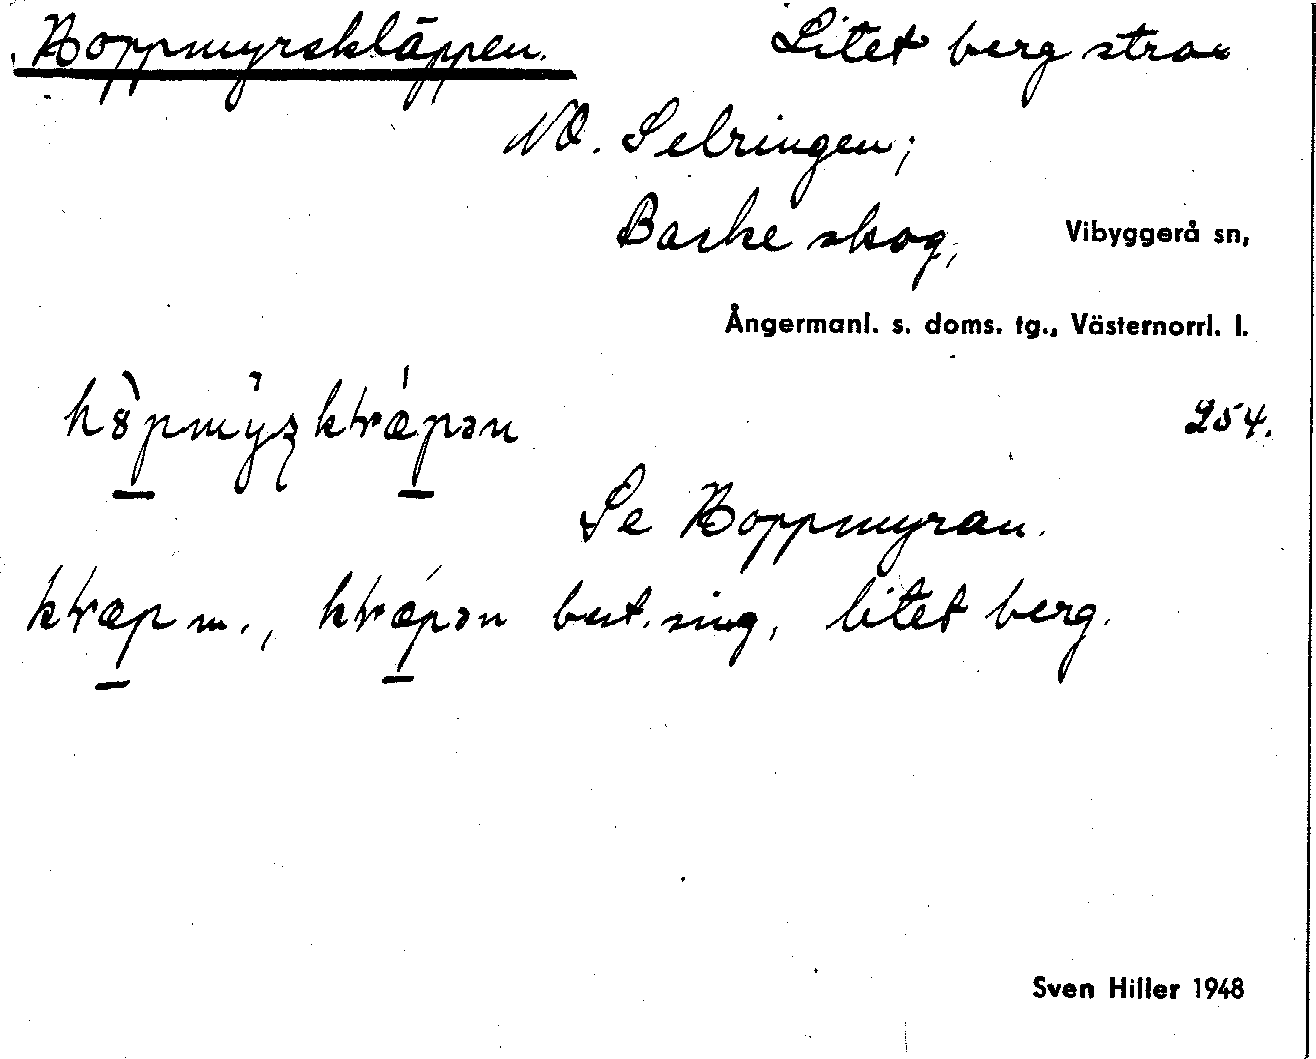 Hoppmyrskläppen. Litet berg strax
NO. Selringen;
Baske skog, Vibyggerå sn,
Ångermanl. s. doms. tg., Västernorrl. l.
254.
Se Hoppmyran.
m., best. sing, litet berg.
Sven Hiller 1948